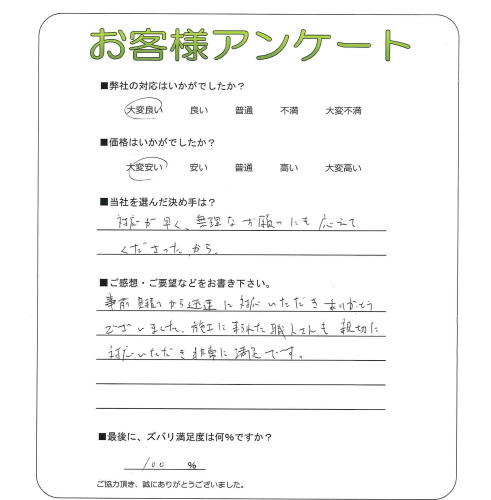 お客様アンケート
■弊社の対応はいかがでしたか？
大変良い 良い 普通 不満 大変不満
■価格はいかがでしたか？
大変安い 安い 普通 高い 大変高い
■当社を選んだ決め手は？
対応が早く、無理なお願いにも応えて
くださったから。
■ご感想・ご要望などをお書き下さい。
事前見積りから迅速に対応いただきありがとう
ございました。施工に来られた職人さんも親切に
対応いただき非常に満足です。
■最後に、ズバリ満足度は何％ですか？
100 ％
ご協力頂き、誠にありがとうございました。